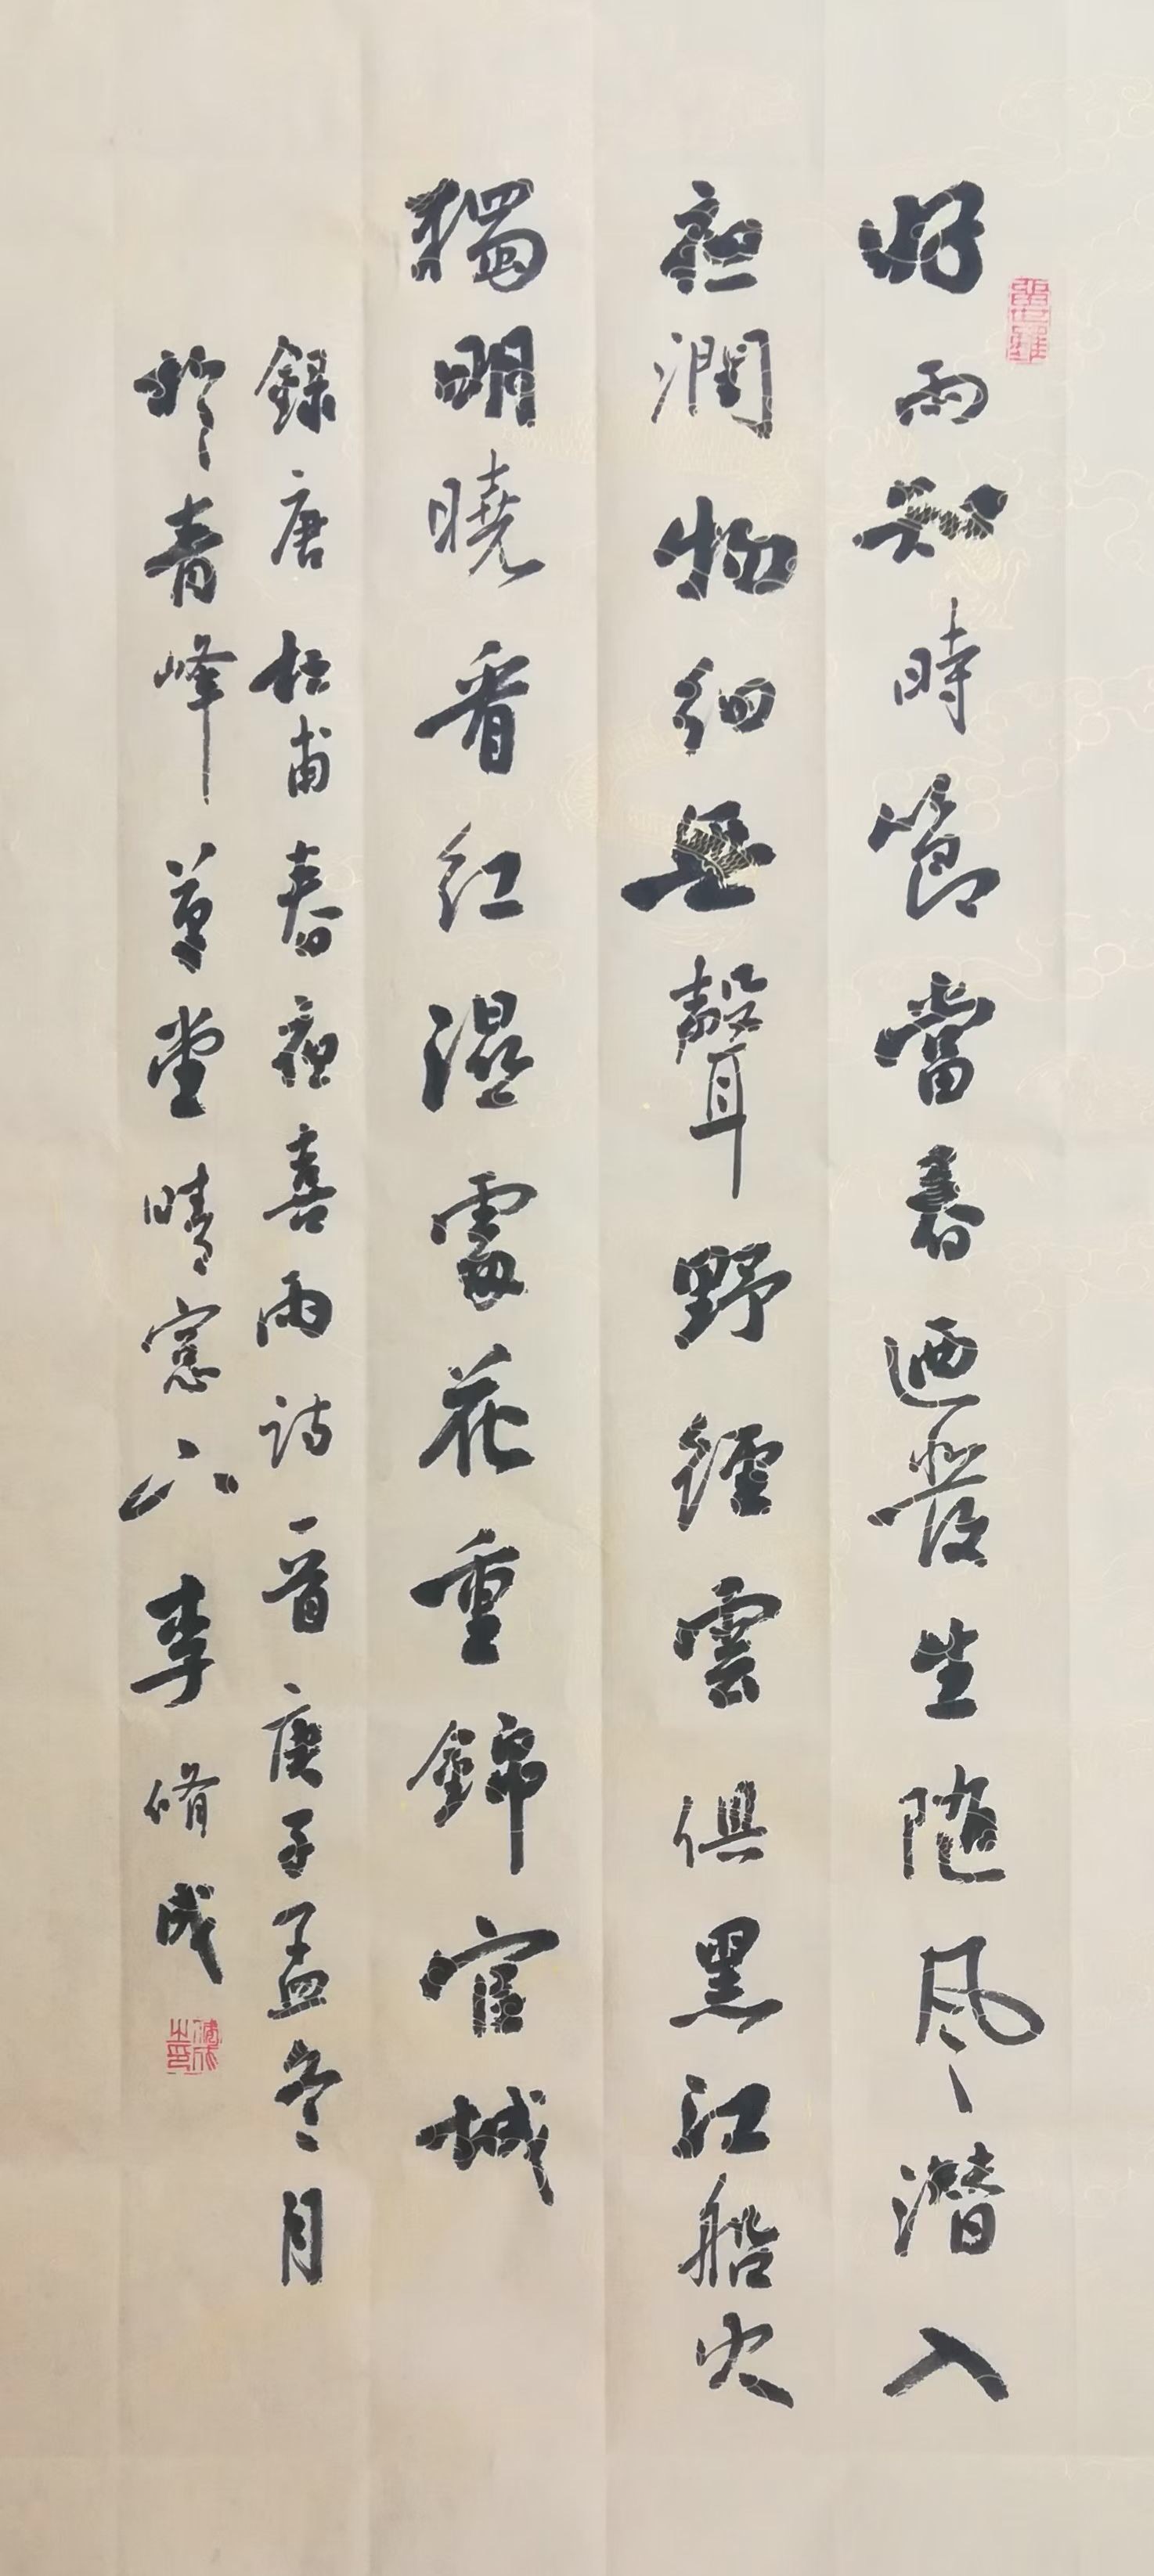 好雨知時節當春迺發生随风潛入
夜潤物細無聲野徑雲俱黑江船火
獨明曉看紅濕處花重錦官城
錄唐杜甫春夜喜雨詩一首庚子孟冬月
於青峰草堂晴窻下李脩成